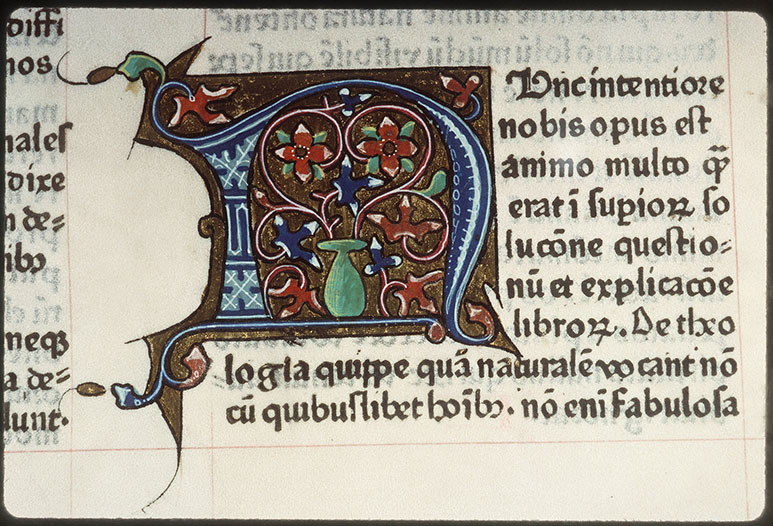 diffi
nos
nales
dixe
n de=
ibꝫ
neqꝫ
a de=
lunt·
NUnc intentiore
nobis opus est
animo multo qͣꝫ
erat ī supioꝝ so
lucōne questio=
nū et explicacōe
libroꝝ. De theo
logia quippe quā naturalē vocant nō
cū quibuslibet hoībꝫ· nō enī fabulosa